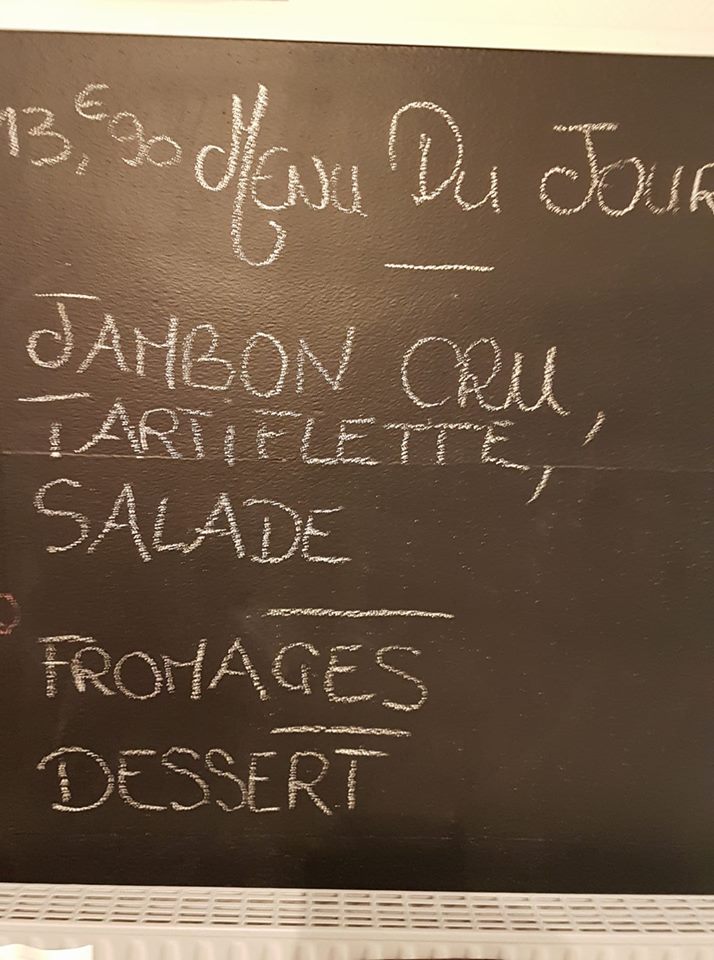 13,€90 Menu Du Jour
JAMBON CRU,
TARTIFLETTE,
SALADE
FROMAGES
DESSERT